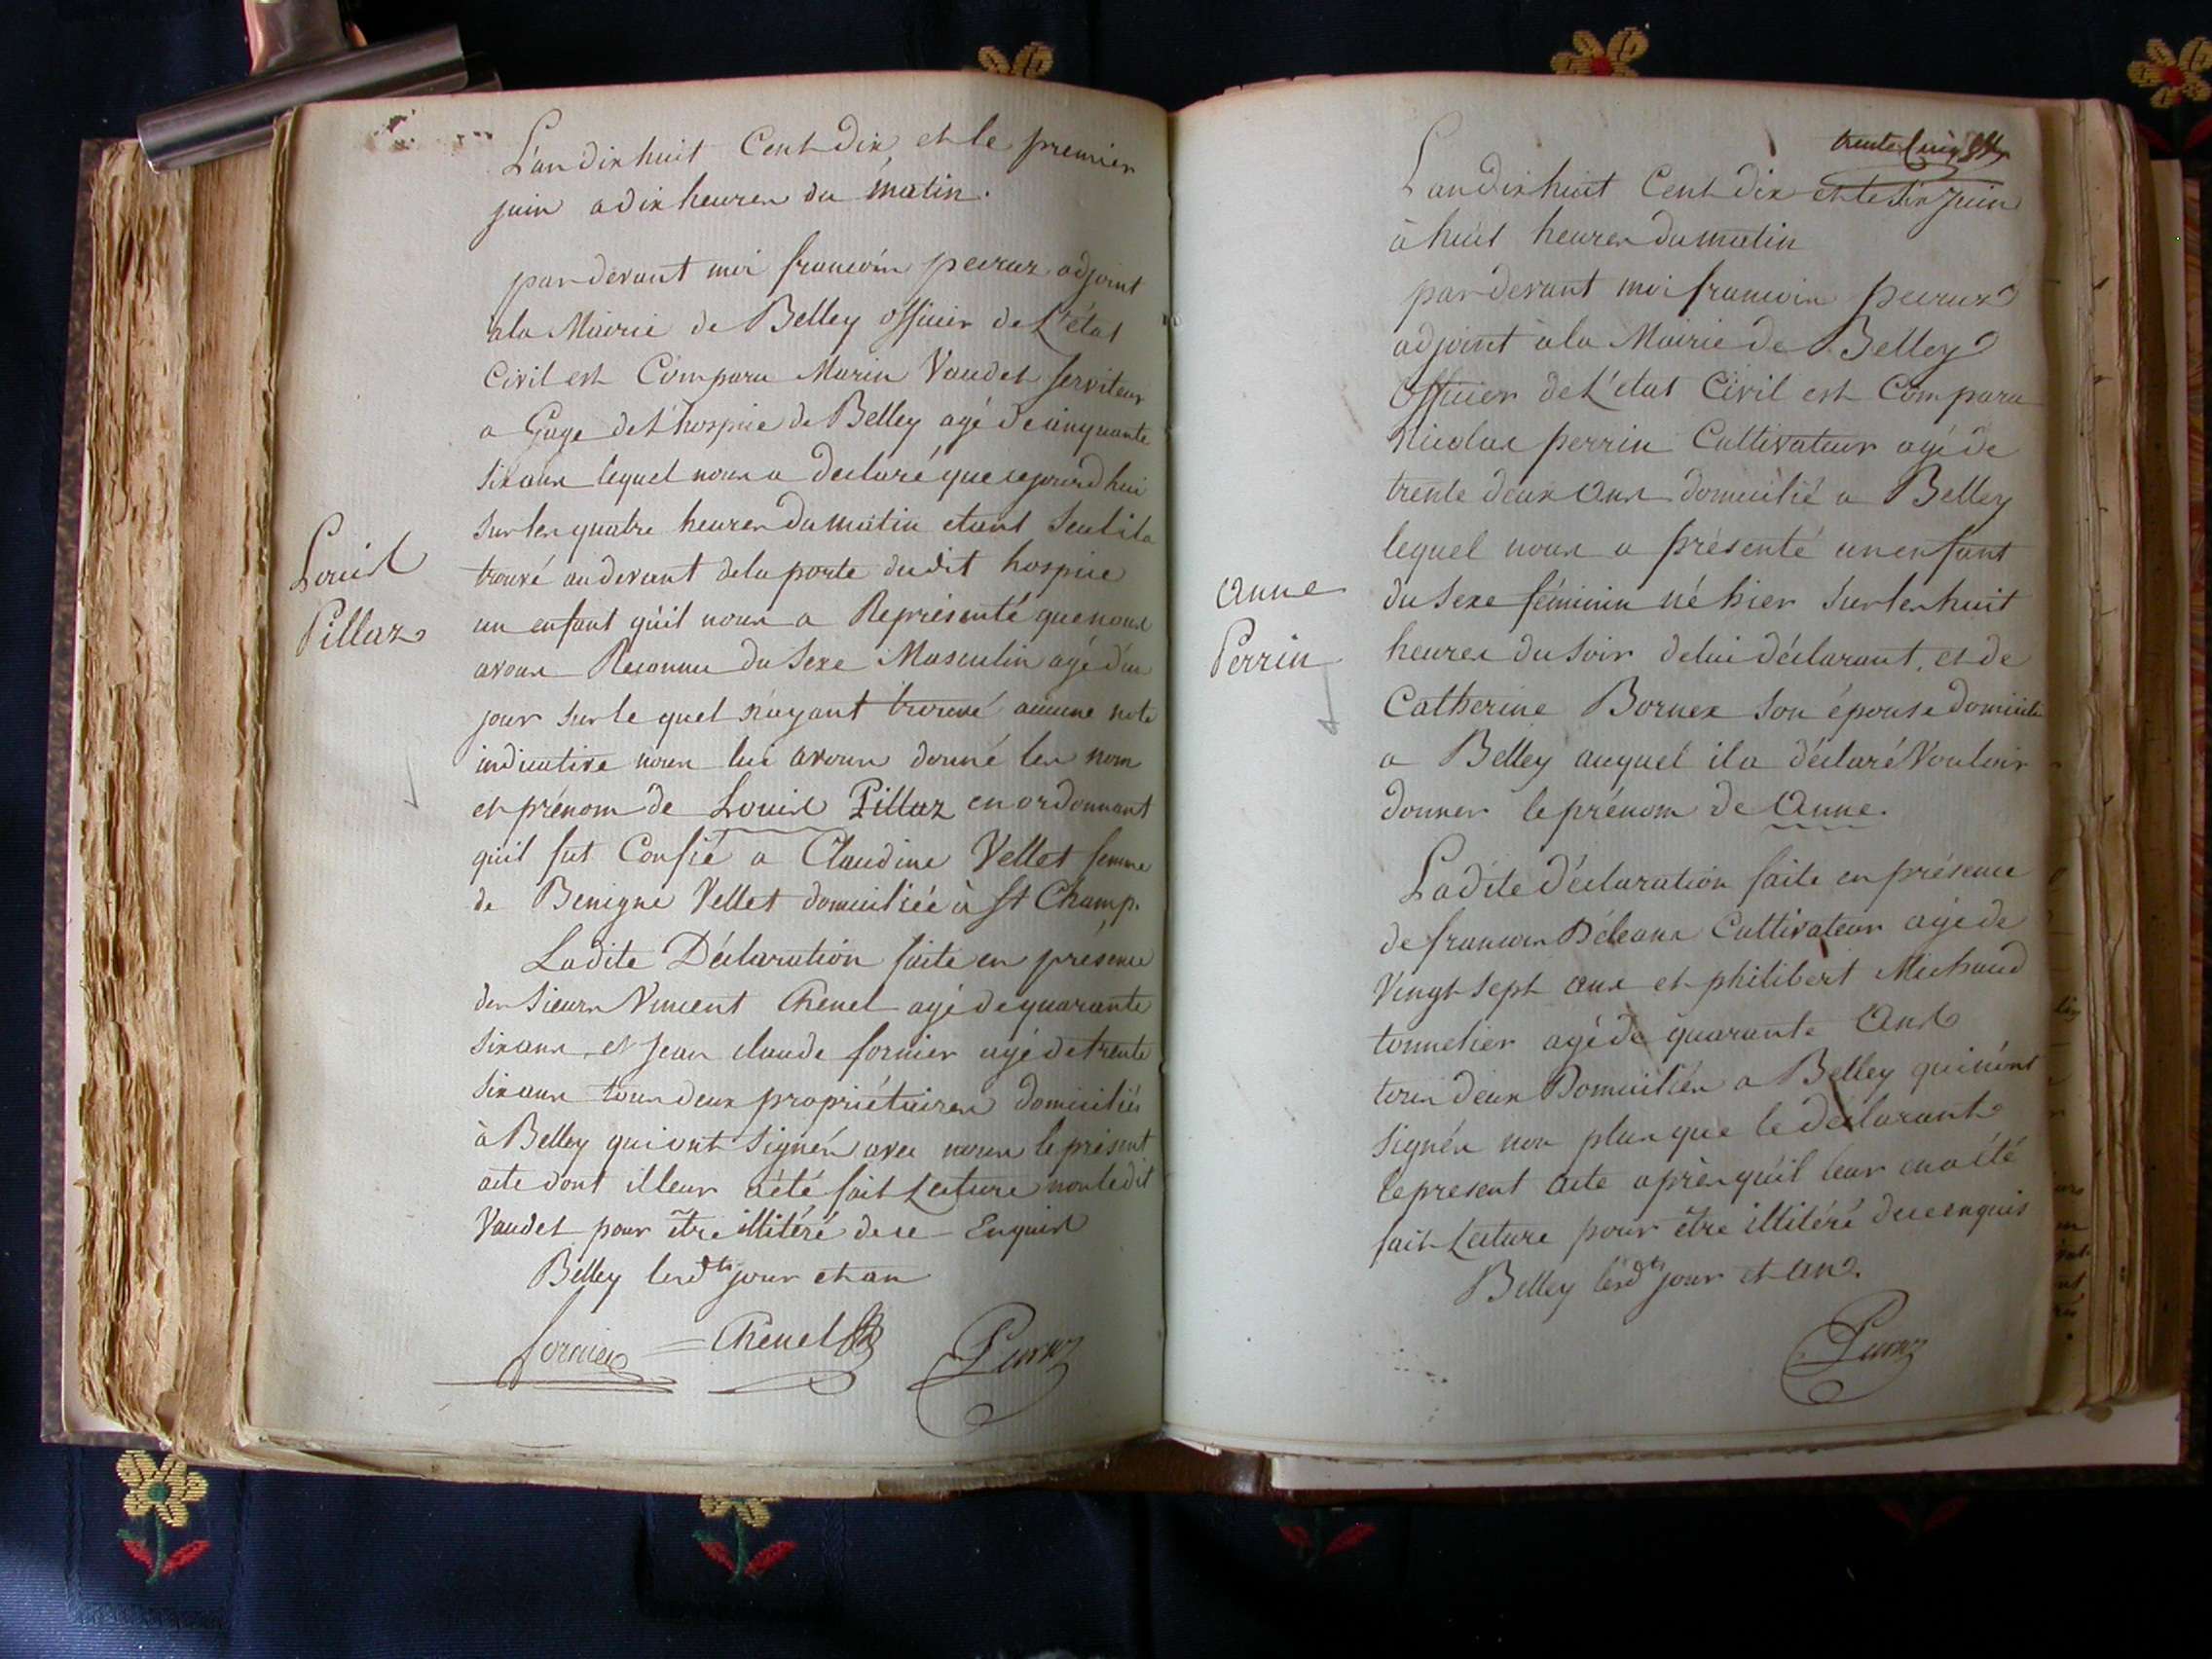 L'an dix huit Cent dix et le premier
juin a dix heures du matin.
par devant moi françois peuruz adjoint
a la Mairie de Belley officier de L'état
Civil est Comparu Marin Vaudet serviteur
a Gage de l'hospice de Belley agé de cinquante
six ans lequel nous a declaré que cejourd'hui
sur les quatre heures du matin etant seul il a
trouvé au devant de la porte dudit hospice
un enfant qu'il nous a Représenté que nous
avons Reconnu du sexe Masculin agé d'un
jour sur le quel n'ayant trouvé aucune note
indicative nous lui avons donné les nom
et prénom de Louis Pillaz en ordonnant
qu'il fut Confié a Claudine Vellet femme
de Benigne Vellet domiciliée à St Champ.
Louis
Pillaz
Ladite Déclaration faite en présence
des sieurs Vincent Chenel agé de quarante
six ans et jean claude fornier agé de trente
six ans tous deux propriétaires domiciliés
à Belley qui ont signés avec nous le présent
acte dont il leur a été fait Lecture non ledit
Vaudet pour être illitéré de ce Enquis
Belley lesdts jour et an
fornier Chenel Peuruz
trente Cinq
L'an dix huit Cent dix et le six juin
à huit heures du matin
par devant moi françois peuruz
adjoint à la Mairie de Belley
Officier de L'état Civil est Comparu
Nicolas perrin Cultivateur agé de
trente deux ans domicilié a Belley
lequel nous a présenté un enfant
du sexe féminin né hier sur les huit
heures du soir de lui déclarant, et de
Catherine Bornex son épouse domicilié
a Belley auquel il a déclaré Vouloir
donner le prénom de Anne.
Anne
Perrin
Ladite déclaration faite en présence
de françois Béleans Cultivateur agé de
Vingt sept ans et philibert Michaud
tonnelier agé de quarante Ans
tous deux Domiciliés a Belley qui n'ont
signés non plus que le déclarant
le present acte après qu'il leur en a été
fait Lecture pour être illitéré de ce enquis
Belley lesdts jour et an.
Peuruz